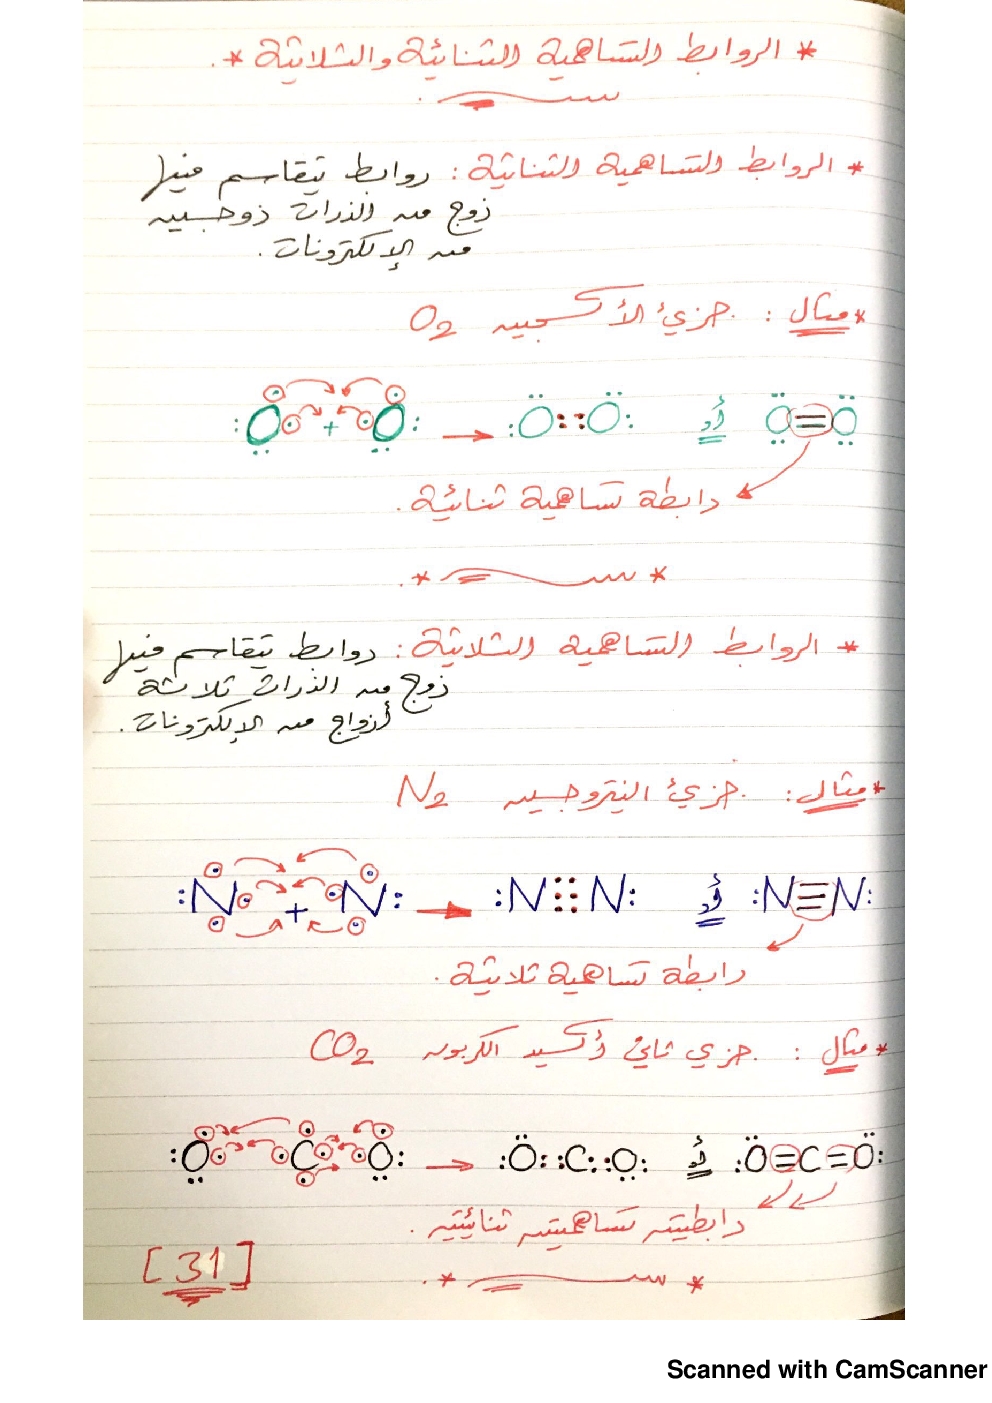 * الروابط التساهمية الثنائية والثلاثية *.
* الروابط التساهمية الثنائية : روابط يتقاسم فيها
زوج من الذرات زوجين
من الإلكترونات .
* مثال : جزيء الأكسجين O2
:O + O: → :O::O: أو O=O
رابطة تساهمية ثنائية .
* الروابط التساهمية الثلاثية : روابط يتقاسم فيها
زوج من الذرات ثلاثة
أزواج من الإلكترونات .
* مثال : جزيء النيتروجين N2
:N + N: → :N⫶⫶N: أو :N≡N:
رابطة تساهمية ثلاثية .
* مثال : جزي ثاني أكسيد الكربون CO2
:O C O: → :O::C::O: أو :O=C=O:
رابطتين تساهميتين ثنائيتين .
[31]
Scanned with CamScanner